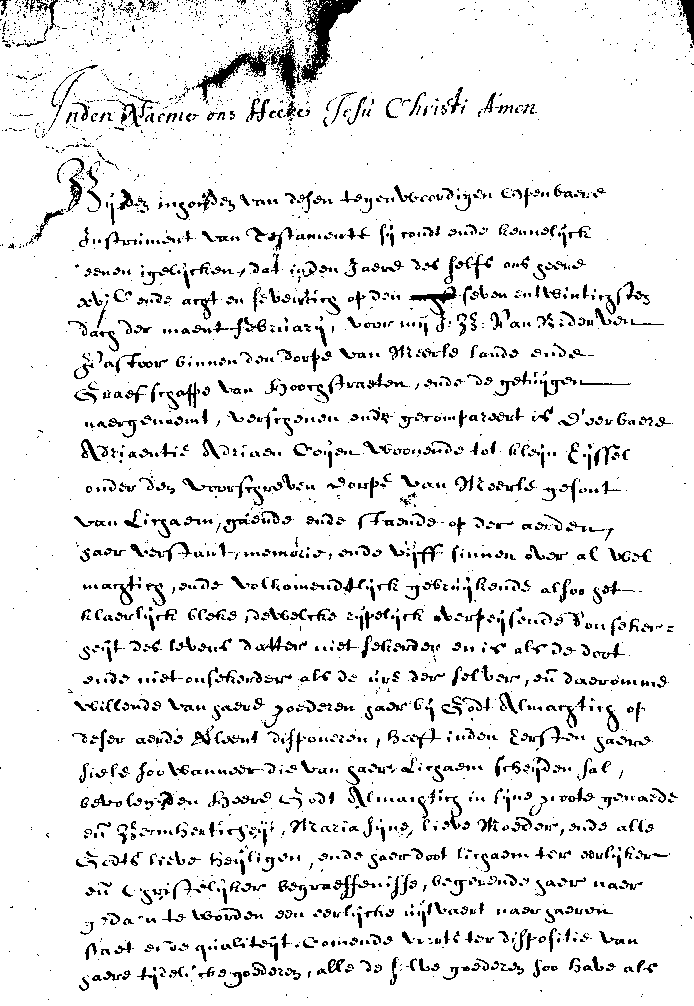 Inden Naeme ons Heeren Jesu Christi Amen
Bijden inhouden van desen tegenwoordigen Openbaere
Instrument van Testamente sij condt ende kennelijck
eenen igelijcken, dat inden Jaere des selfs ons heere
xvjC ende acht en seventich op den seven entwintichsten
dach der maent februarij, voor mij J: B: Van
Pastoor binnen den dorpe van Meerle lande ende
Graefschappe van Hoochstraeten, ende de getuijgen
naergenoemt, verschenen ende gecompareert is d'eerbaere
Adriaentie Adriaen Goijen woonende tot kleijn Eijssel
onder den voorschreven dorpe van Meerle gesont
van Lichaem, gaende ende staende op der aerden,
haer verstant, memorie, ende vijff sinnen over al wel
machtich, ende volkomendtlijck gebruijkende alsoo het
klaerlijck bleke, dewelcke rijpelijck overpeijsende d'onseker=
heijt des levens datter niet sekerder en is als de doot
ende niet onsekerder als de ure der selver, en daeromme
willende van haere goederen haer bij Godt Almachtich op
deser aerde verleent disponeren, heeft inden Eersten haere
siele soo wanneer die van haere Lichaem scheijden sal,
bevolen den Heere Godt Almachtich in sijne groote genaede
en Bermhertichijt, Maria sijne lieve Moeder, ende alle
Godts lieve heijligen, ende haer doot lichaem ter eerlijker
en Christelijker begraeffenisse, begerende haer naer
gedaen te worden een eerlijcke uijtvaert naer haeren
staet ende qualiteijt. Comende voorts ter dispositie van
haere tijdelijcke goederen, alle de selve goederen soo have als